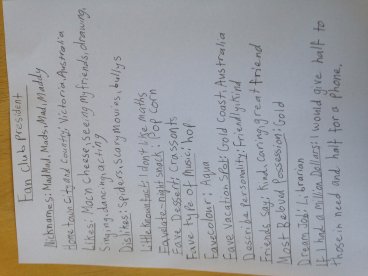 Fan club president
Nicknames: MadMad, Mads, Mad, Maddy
Home town City and Country; Victoria, Australia
Likes: Mac n Cheese, seeing my friends, drawing,
Singing, dancing, acting
Dislikes: Spiders, Scary movies, bullys
Little Known fact: I don't like maths
Favourite night snack: Pop corn
Fave Dessert: Crassonts
Fave type of Music; hop
Fave colour: Aqua
Fave Vacation Spot: Gold Coast, Australia
Describe Personality: Friendly, Kind
Friends Say; Kind, Caring, great friend
Most Beloud Possession: Gold
Dream Job: Librarian
If I had a Millon Dollars: I would give half to
those in need and half for a phone.